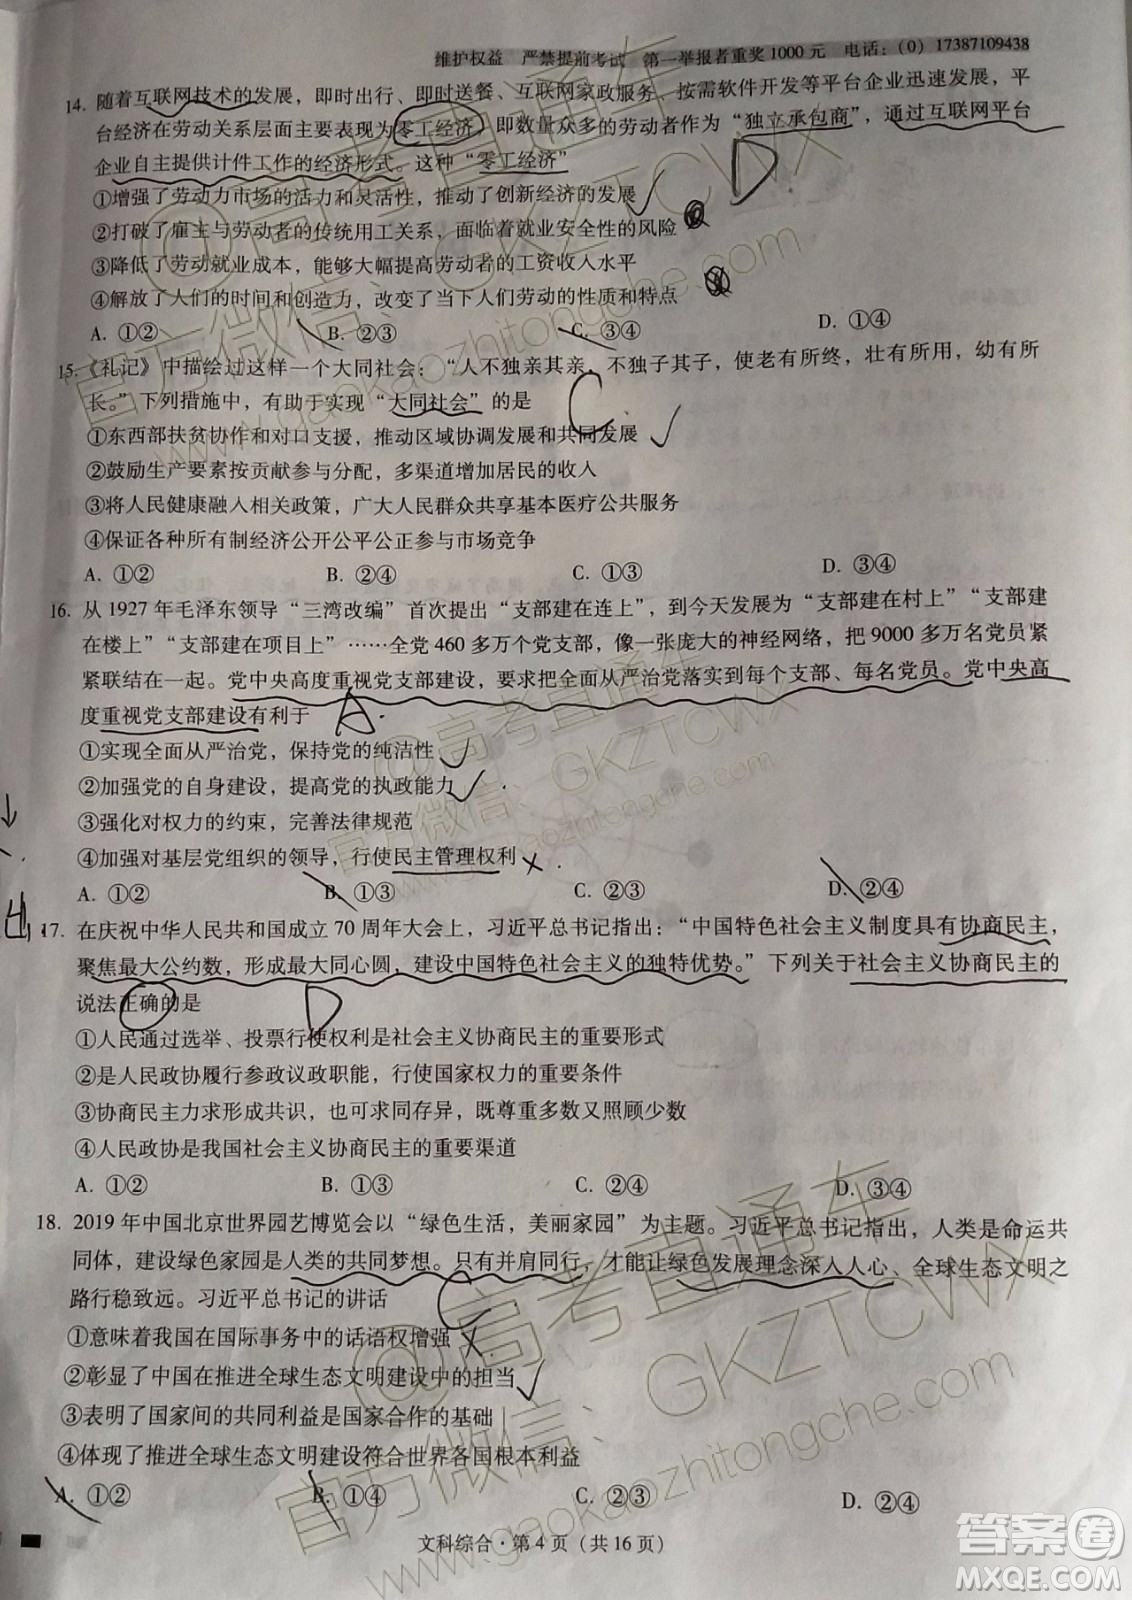 维护权益　严禁提前考试　第一举报者重奖1000元　电话：（0）17387109438
14. 随着互联网技术的发展，即时出行、即时送餐、互联网家政服务、按需软件开发等平台企业迅速发展，平
台经济在劳动关系层面主要表现为零工经济，即数量众多的劳动者作为“独立承包商”，通过互联网平台
企业自主提供计件工作的经济形式。这种“零工经济”
①增强了劳动力市场的活力和灵活性，推动了创新经济的发展
②打破了雇主与劳动者的传统用工关系，面临着就业安全性的风险
③降低了劳动就业成本，能够大幅提高劳动者的工资收入水平
④解放了人们的时间和创造力，改变了当下人们劳动的性质和特点
A. ①② B. ②③ C. ③④ D. ①④
D
15.《礼记》中描绘过这样一个大同社会：“人不独亲其亲，不独子其子，使老有所终，壮有所用，幼有所
长。”下列措施中，有助于实现“大同社会”的是
C
①东西部扶贫协作和对口支援，推动区域协调发展和共同发展
②鼓励生产要素按贡献参与分配，多渠道增加居民的收入
③将人民健康融入相关政策，广大人民群众共享基本医疗公共服务
④保证各种所有制经济公开公平公正参与市场竞争
A. ①② B. ②④ C. ①③ D. ③④
16. 从1927年毛泽东领导“三湾改编”首次提出“支部建在连上”，到今天发展为“支部建在村上”“支部建
在楼上”“支部建在项目上”……全党460多万个党支部，像一张庞大的神经网络，把9000多万名党员紧
紧联结在一起。党中央高度重视党支部建设，要求把全面从严治党落实到每个支部、每名党员。党中央高
度重视党支部建设有利于
A
①实现全面从严治党，保持党的纯洁性
②加强党的自身建设，提高党的执政能力
③强化对权力的约束，完善法律规范
④加强对基层党组织的领导，行使民主管理权利
A. ①② B. ①③ C. ②③ D. ②④
17. 在庆祝中华人民共和国成立70周年大会上，习近平总书记指出：“中国特色社会主义制度具有协商民主，
聚焦最大公约数，形成最大同心圆，建设中国特色社会主义的独特优势。”下列关于社会主义协商民主的
说法正确的是
D
①人民通过选举、投票行使权利是社会主义协商民主的重要形式
②是人民政协履行参政议政职能，行使国家权力的重要条件
③协商民主力求形成共识，也可求同存异，既尊重多数又照顾少数
④人民政协是我国社会主义协商民主的重要渠道
A. ①② B. ①③ C. ②④ D. ③④
18. 2019年中国北京世界园艺博览会以“绿色生活，美丽家园”为主题。习近平总书记指出，人类是命运共
同体，建设绿色家园是人类的共同梦想。只有并肩同行，才能让绿色发展理念深入人心、全球生态文明之
路行稳致远。习近平总书记的讲话
C
①意味着我国在国际事务中的话语权增强
②彰显了中国在推进全球生态文明建设中的担当
③表明了国家间的共同利益是国家合作的基础
④体现了推进全球生态文明建设符合世界各国根本利益
A. ①② B. ①④ C. ②③ D. ②④
文科综合·第4页（共16页）
@高考直通车
官方微信：GKZTCWX
www.gaokaozhitongche.com
@高考直通车
官方微信、GKZTCWX
www.gaokaozhitongche.com
@高考直通车
官方微信、GKZTCWX
www.gaokaozhitongche.com
答案圈
MXQE.COM